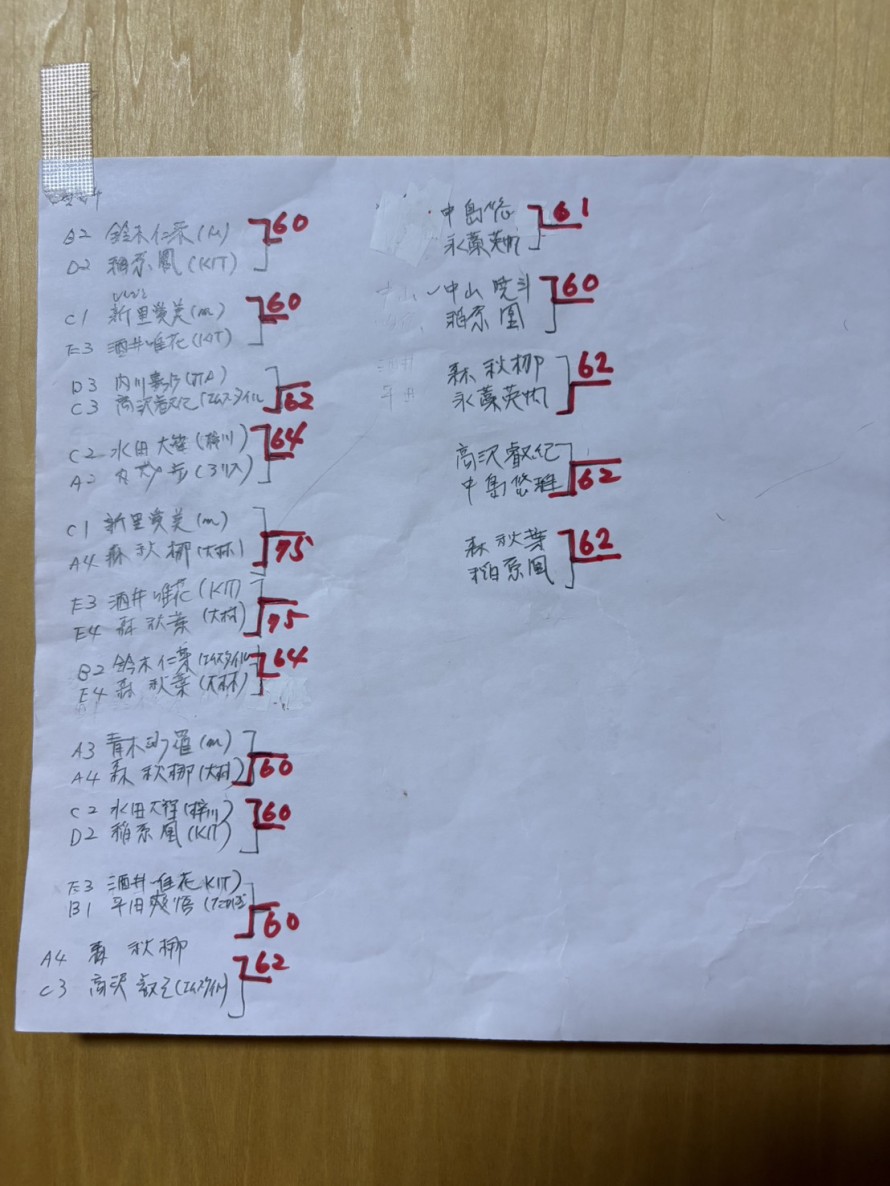 B2 鈴木仁
D2 稲系凰(KIT)
60
C1 新里愛美(m)
E3 酒井唯花
60
D3 内川
C3 高沢叡紀(エムスタイル
62
C2 水田大 (梓川)
A2
64
C1 新里愛美(m)
A4 森 秋柳(大林)
75
E3 酒井唯花(KIT)
E4 森 秋葉 (大村)
75
B2 鈴木仁 (エムスタイル
E4 森 秋葉(大林)
64
A3 青木沙羅(m)
A4 森 秋柳(大村)
60
C2 水田大 (梓川)
D2 稲系凰(KIT)
60
E3 酒井唯花 KIT)
B1 平田爽悟
60
A4 森 秋柳
C3 高沢 (エムスタイル)
62
中島悠
永藁英
61
中山 暁斗
稲系凰
60
森 秋柳
永藁英
62
高沢叡紀
中島悠雅
62
森 秋葉
稲系凰
62